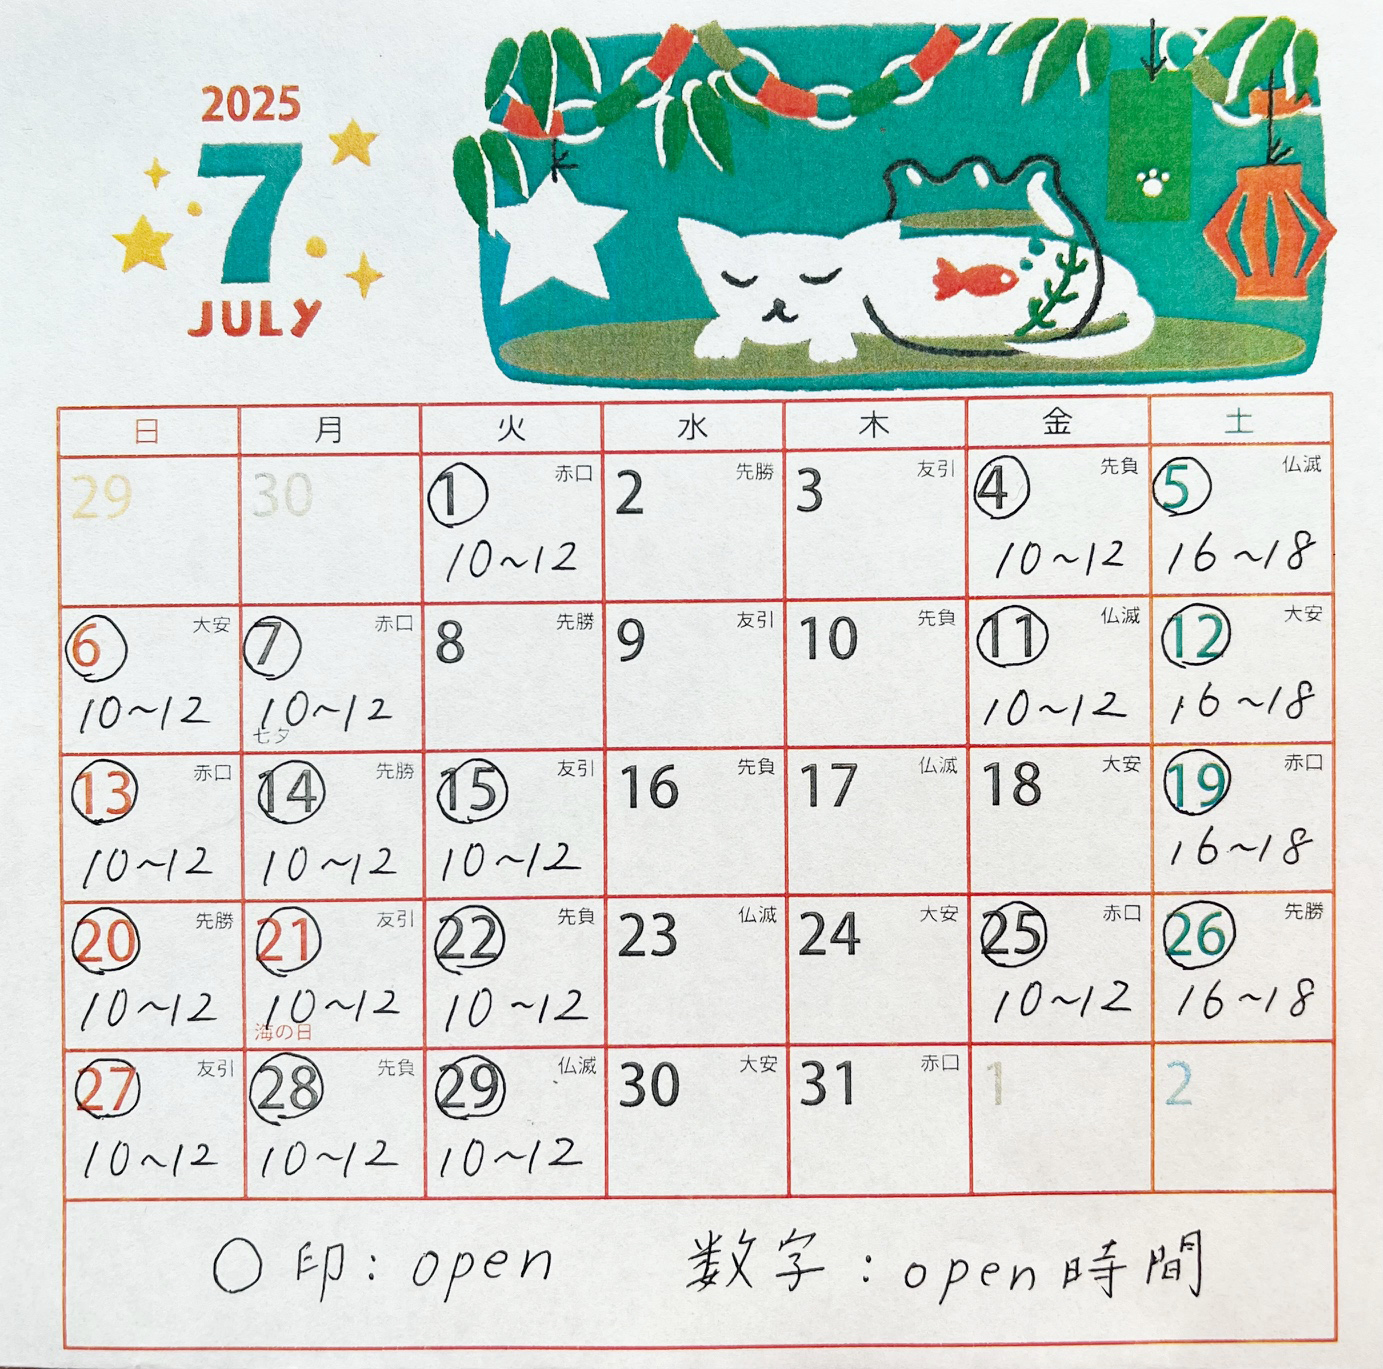 2025
7
JULY
日 月 火 水 木 金 土
29 30 1 赤口 2 先勝 3 友引 4 先負 5 仏滅
10~12 10~12 16~18
6 大安 7 赤口 8 先勝 9 友引 10 先負 11 仏滅 12 大安
10~12 10~12 10~12 16~18
七夕
13 赤口 14 先勝 15 友引 16 先負 17 仏滅 18 大安 19 赤口
10~12 10~12 10~12 16~18
20 先勝 21 友引 22 先負 23 仏滅 24 大安 25 赤口 26 先勝
10~12 10~12 10~12 10~12 16~18
海の日
27 友引 28 先負 29 仏滅 30 大安 31 赤口 1 2
10~12 10~12 10~12
○印:open 数字:open時間